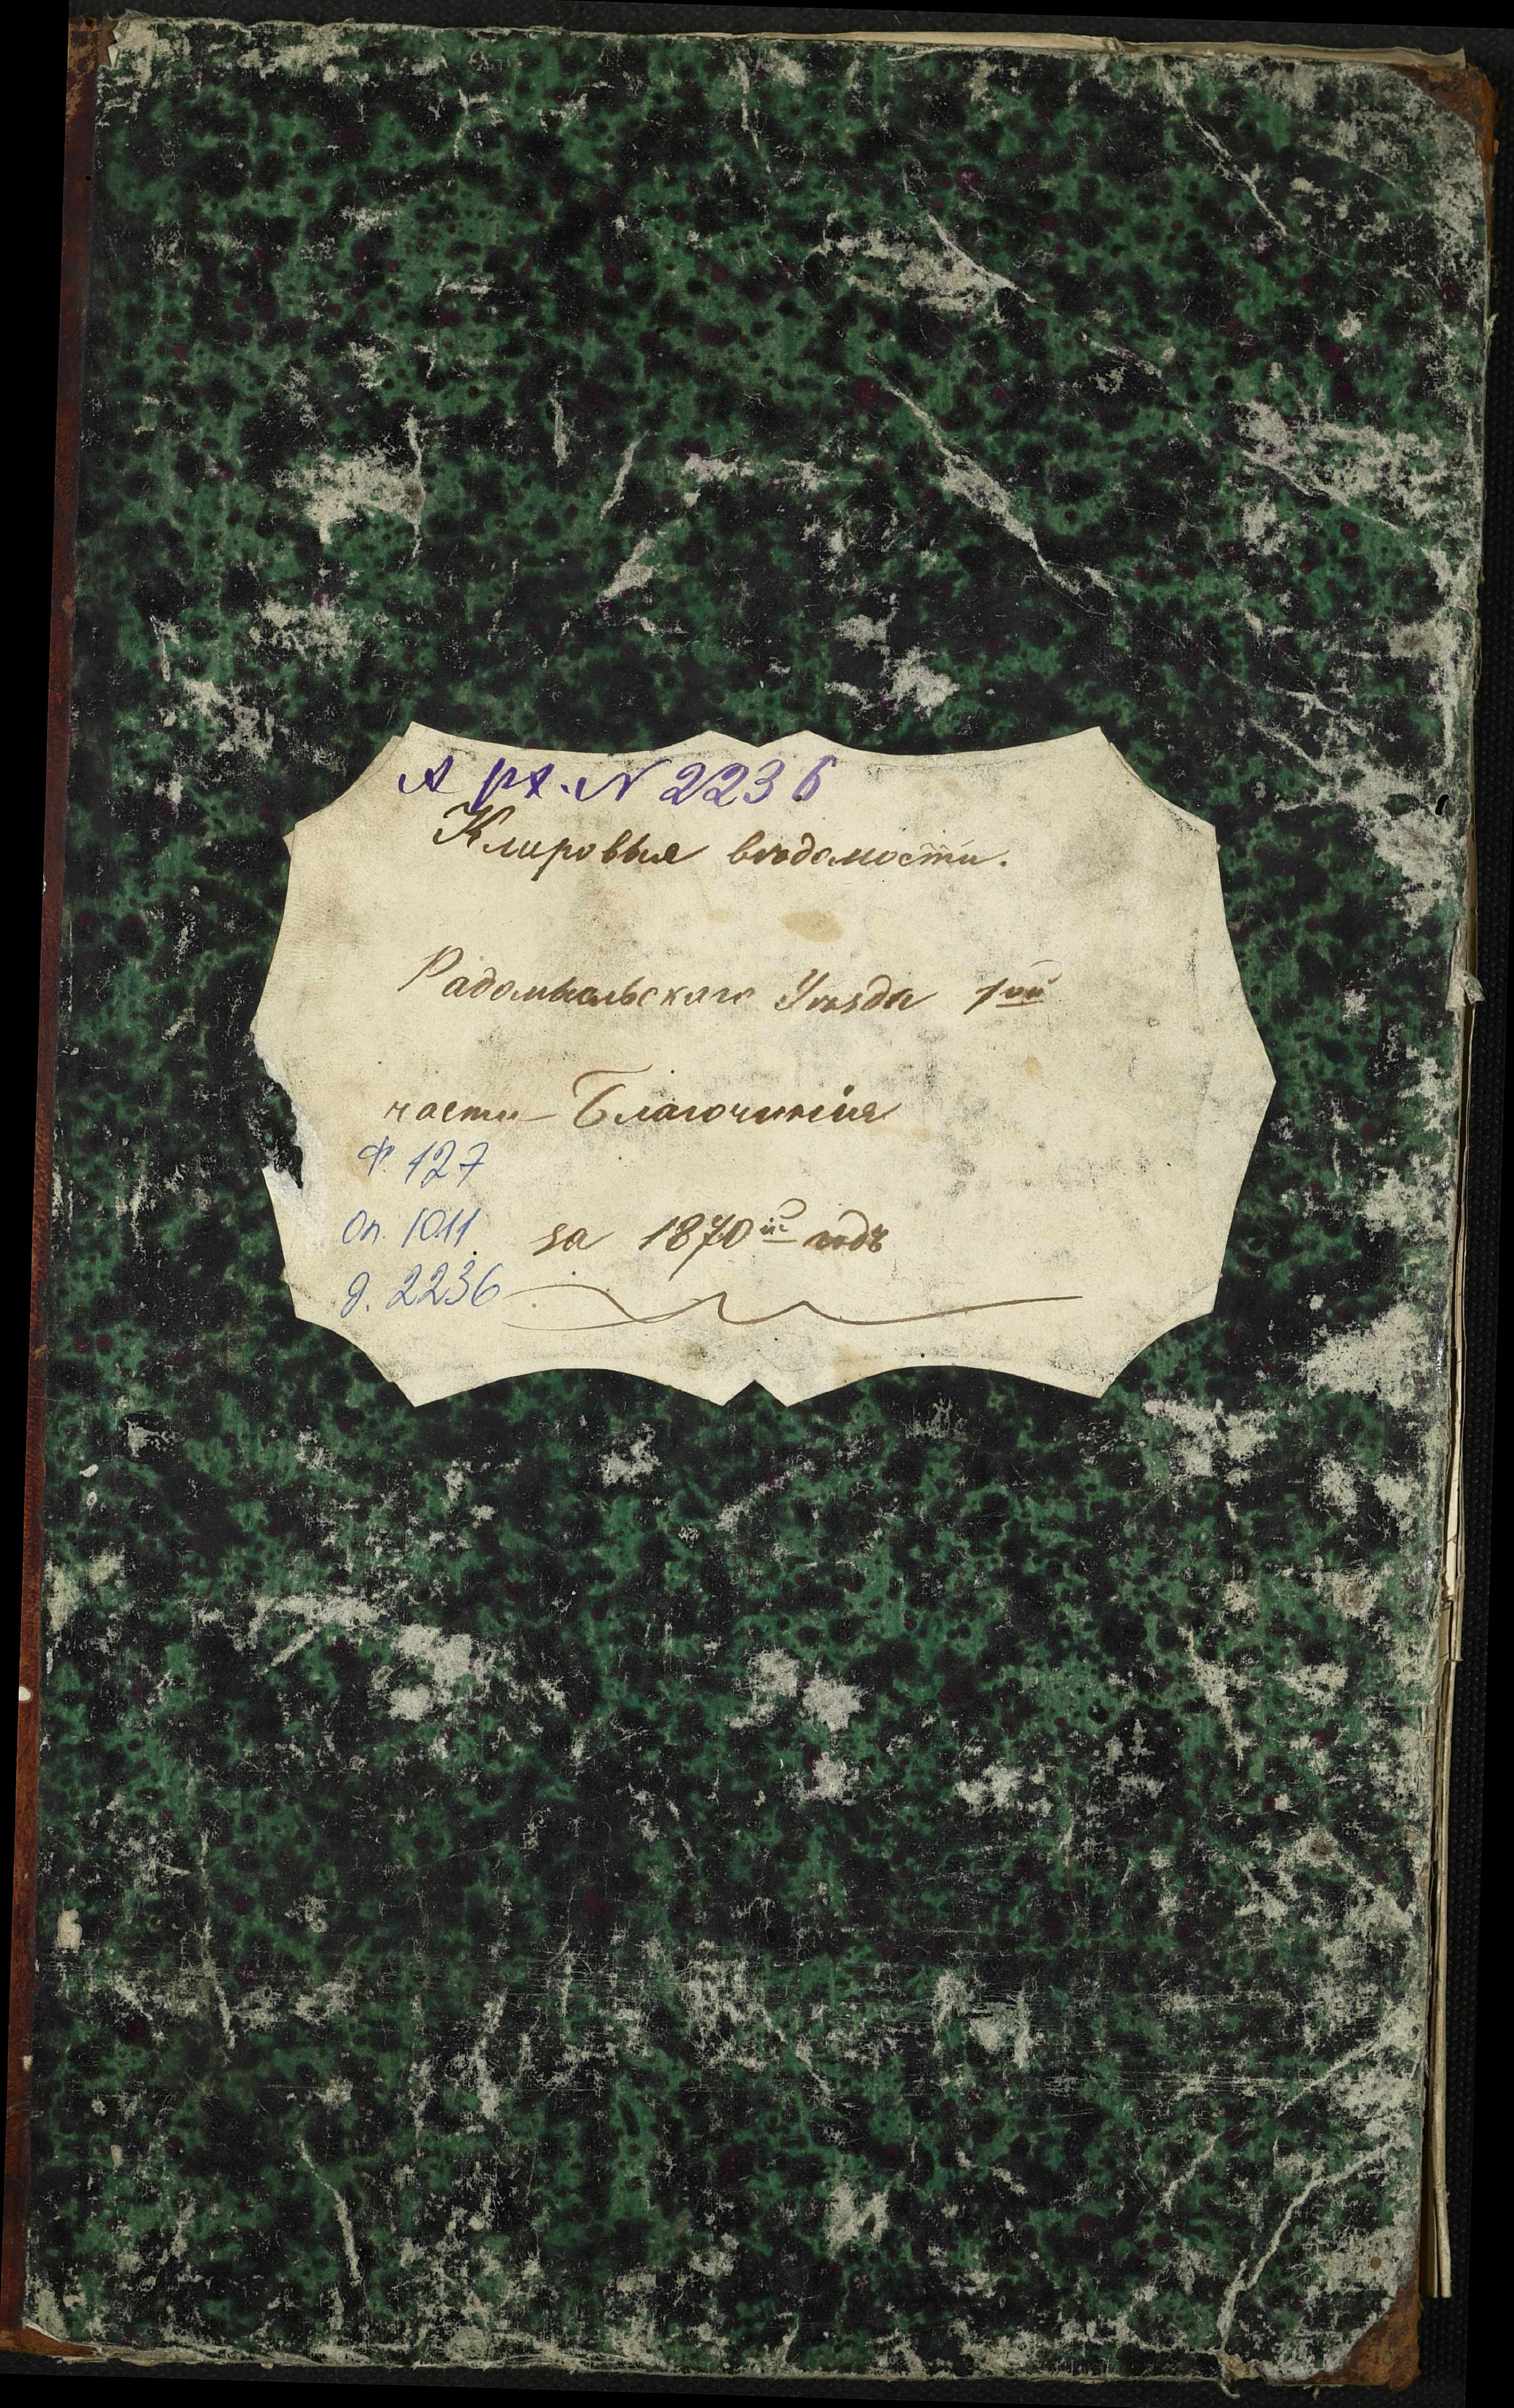 Арх. N 2236
Клировыя вѣдомости.
Радомысльскаго Уѣзда 1ой
части Благочинія
Ф. 127
оп. 1011 за 1870й годъ
д. 2236